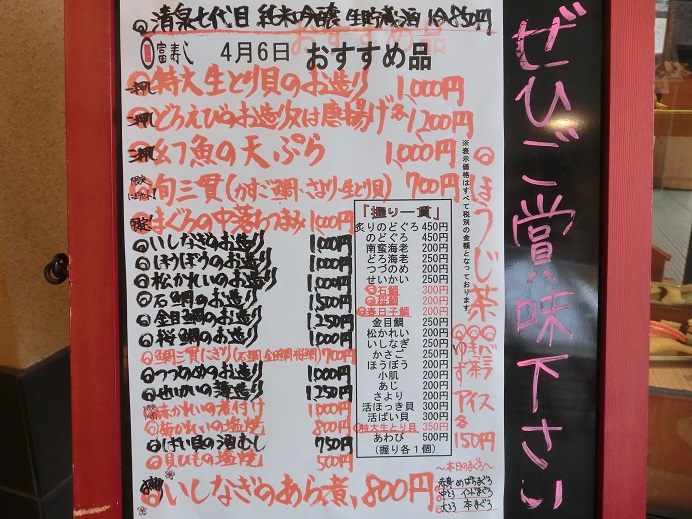 清泉七代目 純米吟醸 生貯蔵酒 冷850円
富寿し 4月6日 おすすめ品
特大生とり貝のお造り 1,000円
どろえびのお造り又は唐揚げ 各1,200円
幻魚の天ぷら 1,000円
旬三貫(かすご鯛、さより、生とり貝) 700円
まぐろの中落ちつまみ 1,000円
いしなぎのお造り 1,000円
ほうぼうのお造り 1,000円
松かれいのお造り 1,000円
石鯛のお造り 1,500円
金目鯛のお造り 1,250円
桜鯛のお造り 1,000円
鯛三貫にぎり(石鯛 金目鯛 桜鯛) 700円
つづのめのお造り 1,250円
せいかいの薄造り 1,250円
かれいの煮付け 1,000円
かれいの塩焼 800円
ばい貝の酒むし 750円
貝ひもの塩焼 500円
いしなぎのあら煮、800円
「握り一貫」
炙りのどぐろ 450円
のどぐろ 450円
南蛮海老 200円
どろ海老 250円
つづのめ 200円
せいかい 250円
石鯛 300円
桜鯛 200円
春日子鯛 200円
金目鯛 250円
松かれい 200円
いしなぎ 250円
かさご 250円
ほうぼう 200円
小肌 200円
あじ 200円
さより 200円
活ほっき貝 300円
活ばい貝 250円
特大生とり貝 350円
あわび 500円
(握り各1個)
※表示価格はすべて税別の金額となっております
ほうじ茶
ゆず
アイス
各150円
〜本日のまぐろ〜
赤身 めばちまぐろ
中とろ インドまぐろ
大とろ 本まぐろ
ぜひご賞味下さい